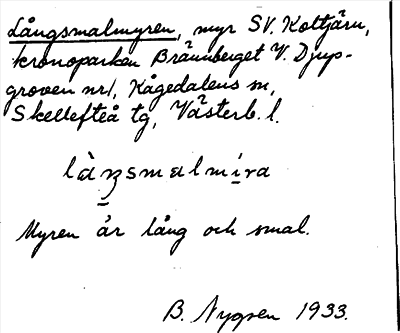 Långsmalmyren, myr SV. Kottjärn,
kronoparken Brännberget V. Djup-
groven nr 1, Kågedalens sn,
Skellefteå tg, Västerb. l.
Myren är lång och smal.
B. Nygren 1933.